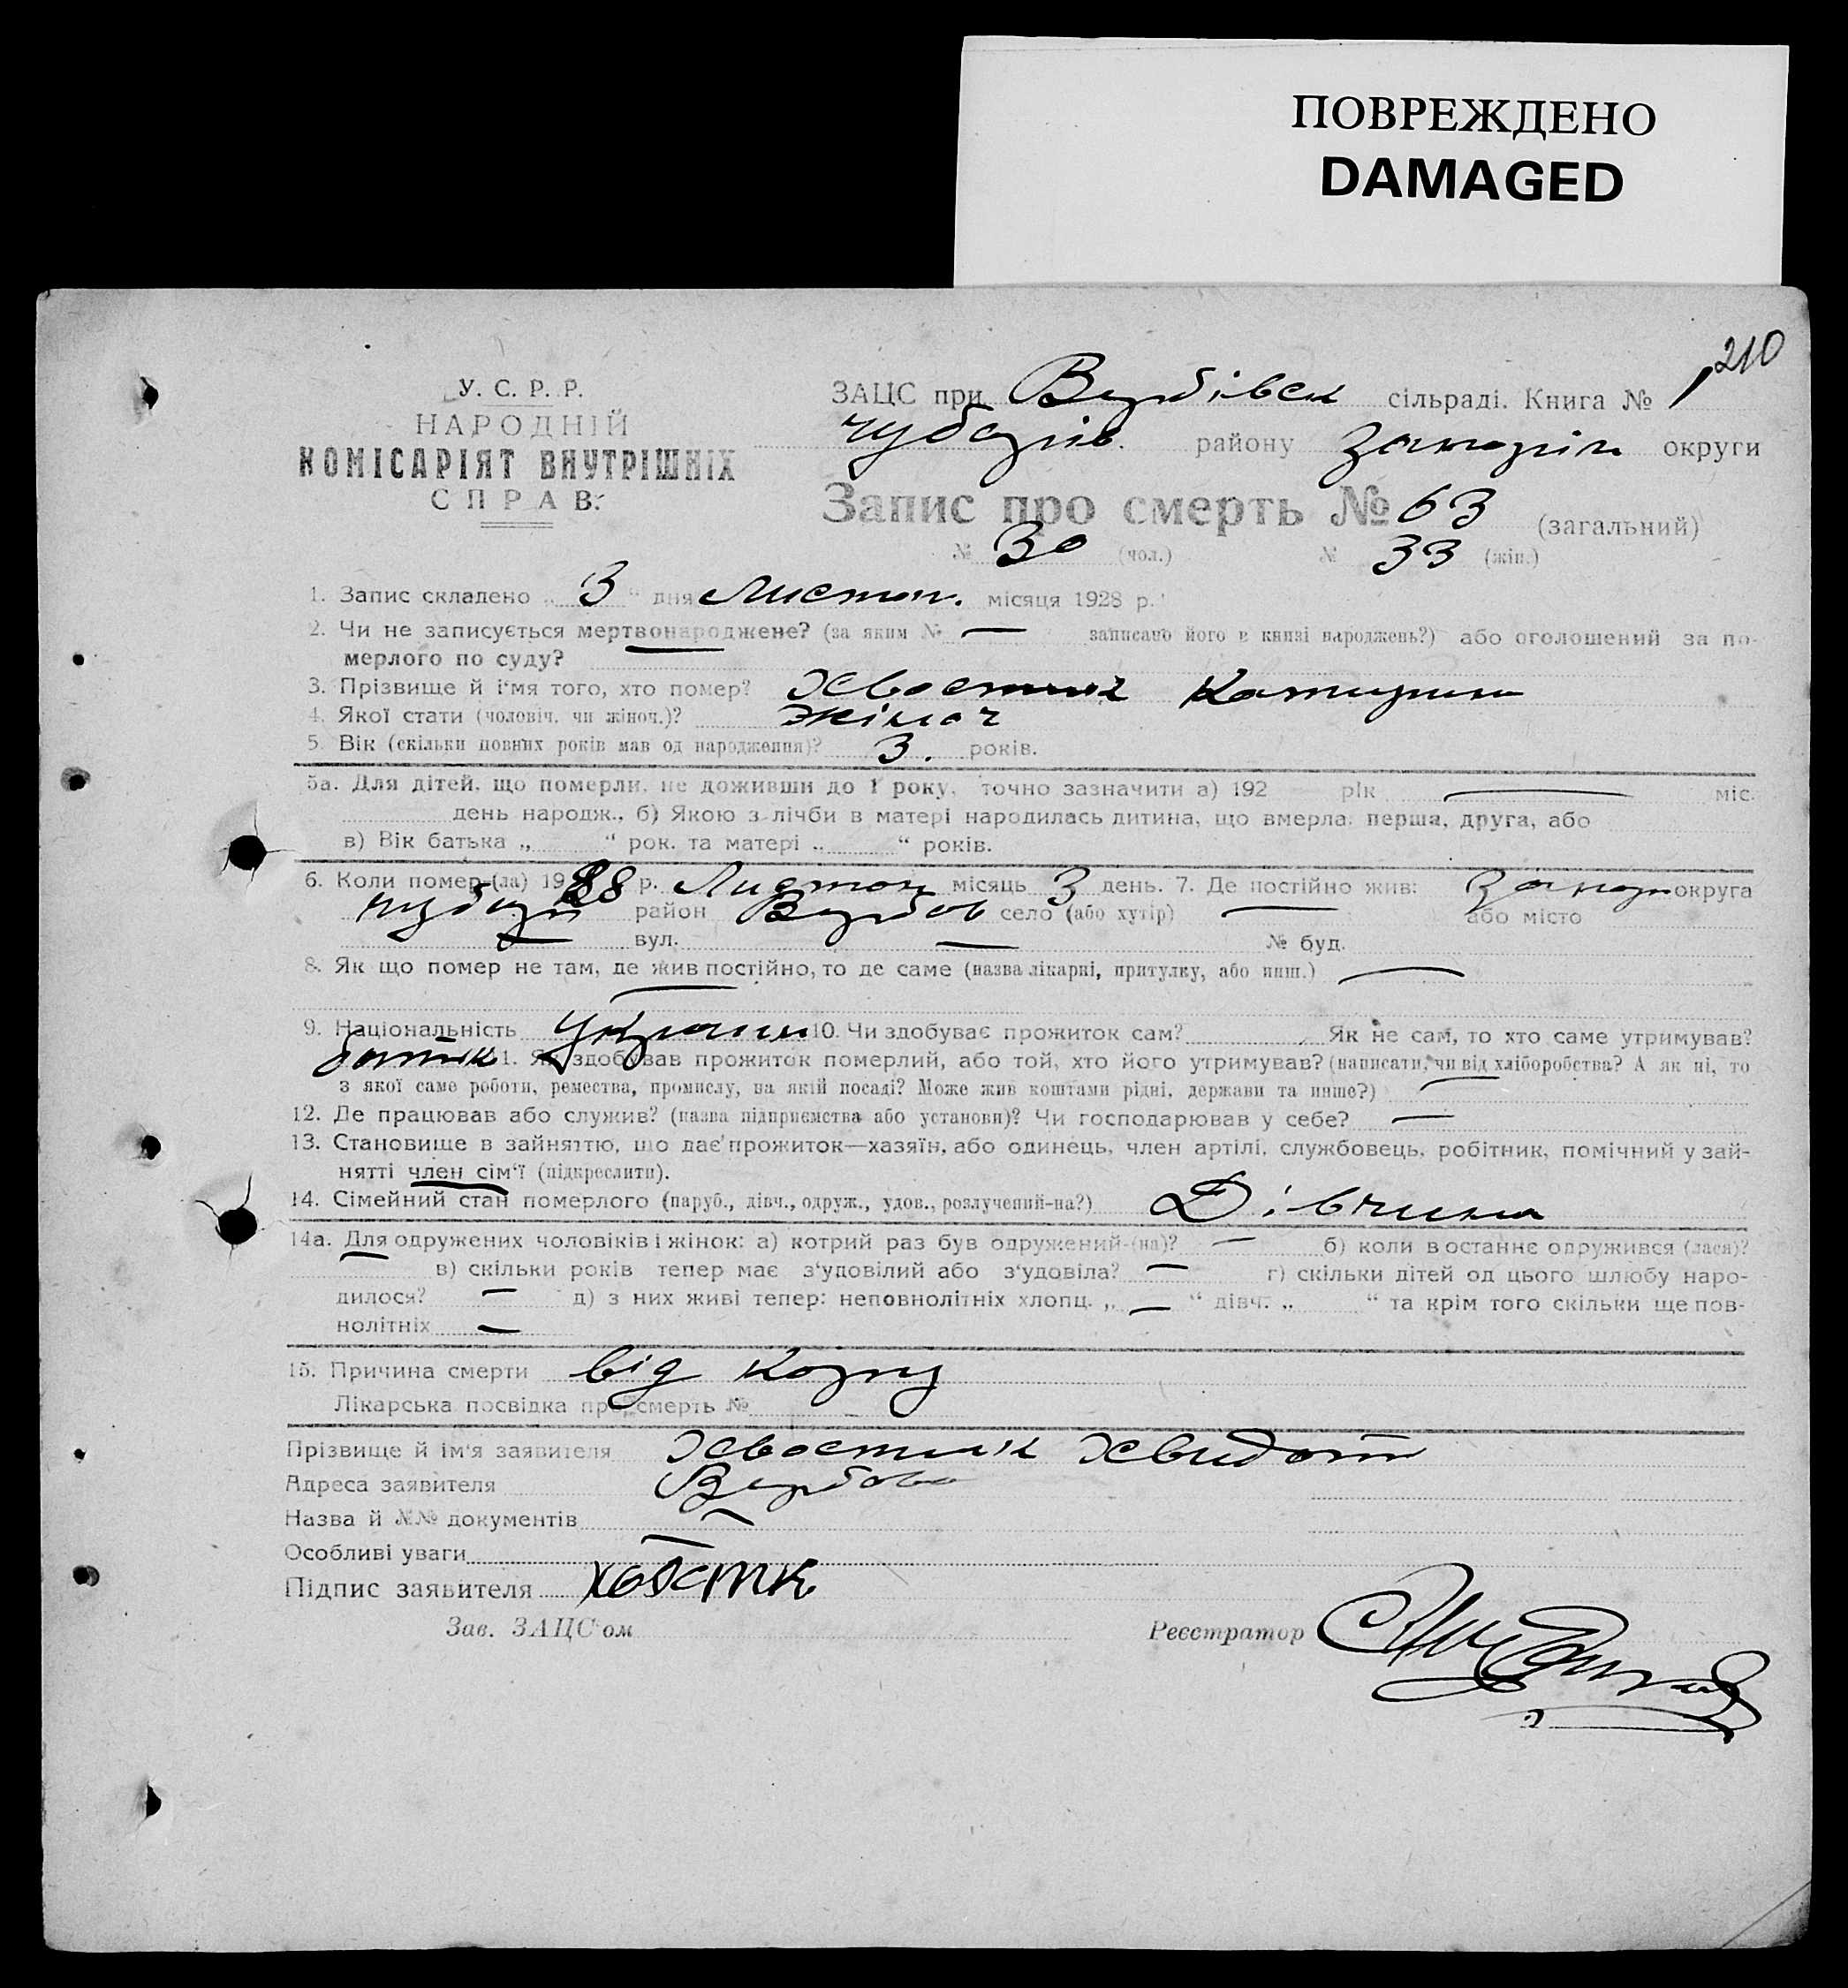 ПОВРЕЖДЕНО
DAMAGED
210
У. С. Р. Р.
НАРОДНІЙ
КОМІСАРІЯТ ВНУТРІШНІХ
СПРАВ.
ЗАЦС при Вербівськ сільраді. Книга № 1
Чубарів. району Запоріж округи
Запис про смерть № 63 (загальний)
№ 30 (чол.) № 33 (жін.)
1. Запис складено „ 3 “ дня Листоп. місяця 1928 р.
2. Чи не записується мертвонароджене? (за яким № — записано його в книзі народжень?) або оголошений за по-
мерлого по суду?
3. Прізвище й ім'я того, хто помер? Хвостик Катерина
4. Якої стати (чоловіч. чи жіноч.)? жіноч
5. Вік (скільки повних років мав од народження)? 3. років.
5а. Для дітей, що померли, не доживши до 1 року, точно зазначити а) 192 рік — міс.
день народж., б) Якою з лічби в матері народилась дитина, що вмерла: перша, друга, або
в) Вік батька „ “ рок. та матері „ “ років.
6. Коли помер-(ла) 1928 р. Листоп місяць 3 день. 7. Де постійно жив: Запор округа
Чубар район Вербов село (або хутір) — або місто
— вул. — № буд.
8. Як що помер не там, де жив постійно, то де саме (назва лікарні, притулку, або инш.) —
—
9. Національність Україн 10. Чи здобуває прожиток сам? Як не сам, то хто саме утримував?
батько 11. Як здобував прожиток померлий, або той, хто його утримував? (написати, чи від хліборобства? А як ні, то
з якої саме роботи, ремества, промислу, на якій посаді? Може жив коштами рідні, держави та инше?) —
12. Де працював або служив? (назва підприємства або установи)? Чи господарював у себе? —
13. Становище в зайняттю, що дає прожиток—хазяїн, або одинець, член артілі, службовець, робітник, помічний у зай-
нятті член сім'ї (підкреслити).
14. Сімейний стан померлого (паруб., дівч., одруж., удов., розлучений-на?) Дівчина
14а. Для одружених чоловіків і жінок: а) котрий раз був одружений-(на)? — б) коли востаннє одружився (лася)?
в) скільки років тепер має з'удовілий або з'удовіла? — г) скільки дітей од цього шлюбу наро-
дилося? — д) з них живі тепер: неповнолітніх хлопц. „ — “ дівч. „ “ та крім того скільки ще пов-
нолітніх —
15. Причина смерти від кору
Лікарська посвідка про смерть №
Прізвище й ім'я заявителя Хвостик Хведот
Адреса заявителя Вербове
Назва й №№ документів —
Особливі уваги —
Підпис заявителя
Зав. ЗАЦС'ом Реєстратор